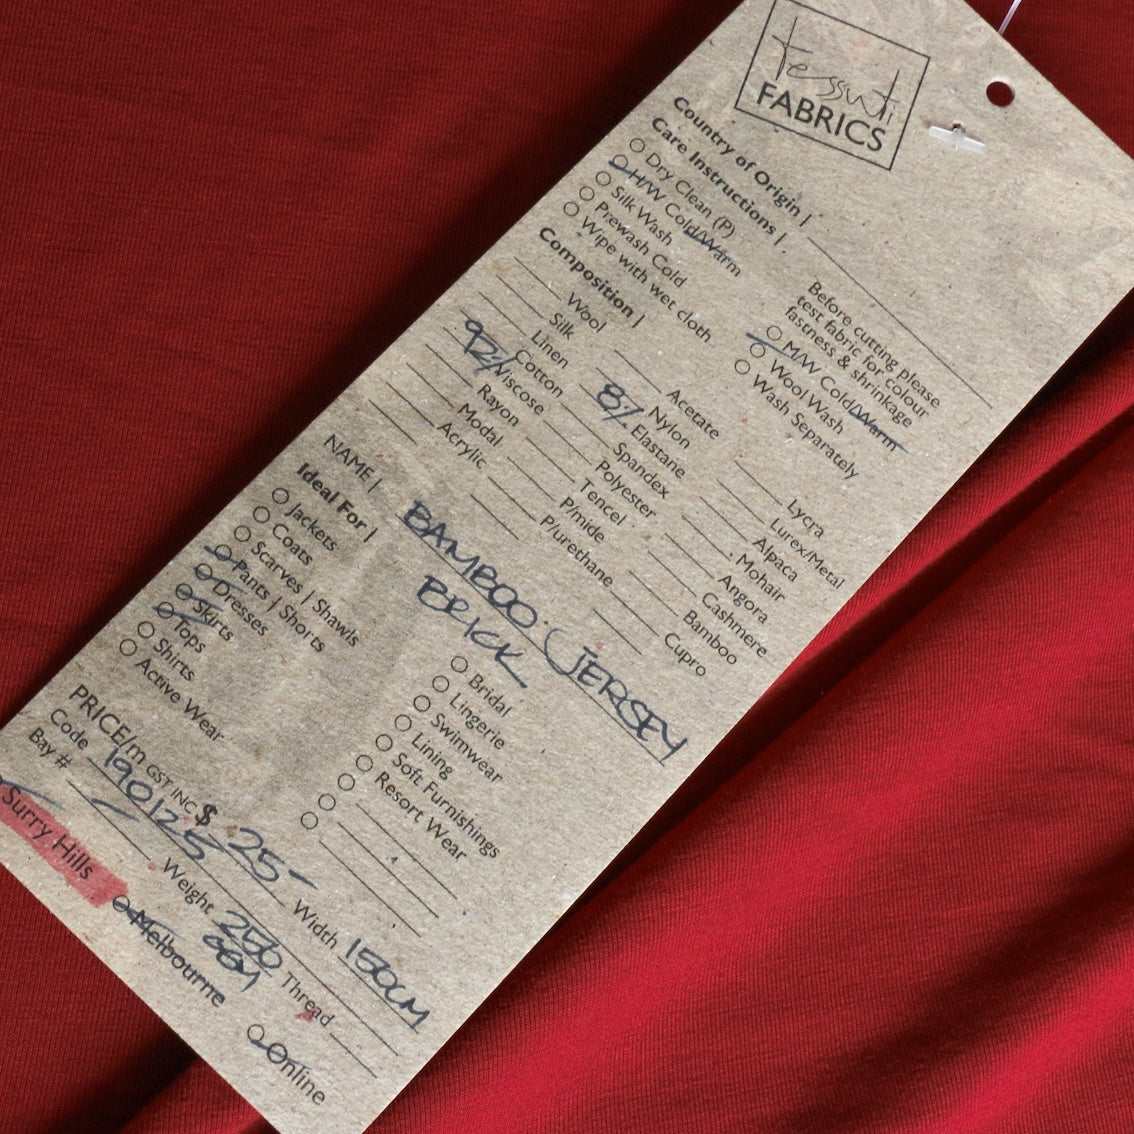 tessuti
FABRICS
Country of Origin |
Care Instructions |
Dry Clean (P)
H/W Cold/Warm
Silk Wash
Prewash Cold
Wipe with wet cloth
Before cutting please
test fabric for colour
fastness & shrinkage
M/W Cold/Warm
Wool Wash
Wash Separately
Composition |
Wool
Silk
Linen
Cotton
92% Viscose
Rayon
Modal
Acrylic
Acetate
Nylon
8% Elastane
Spandex
Polyester
Tencel
P/mide
P/urethane
Lycra
Lurex/Metal
Alpaca
Mohair
Angora
Cashmere
Bamboo
Cupro
NAME | BAMBOO JERSEY
BRICK
Ideal For |
Jackets
Coats
Scarves | Shawls
Pants | Shorts
Dresses
Skirts
Tops
Shirts
Active Wear
Bridal
Lingerie
Swimwear
Lining
Soft Furnishings
Resort Wear
PRICE/m GST INC $ 25-
Code 190125 Width 150cm
Bay # Weight 250 GSM Thread
Surry Hills
Melbourne
Online